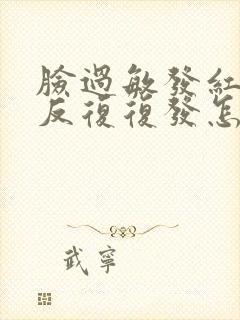 臉過敏發紅
反復復發怎
武寧